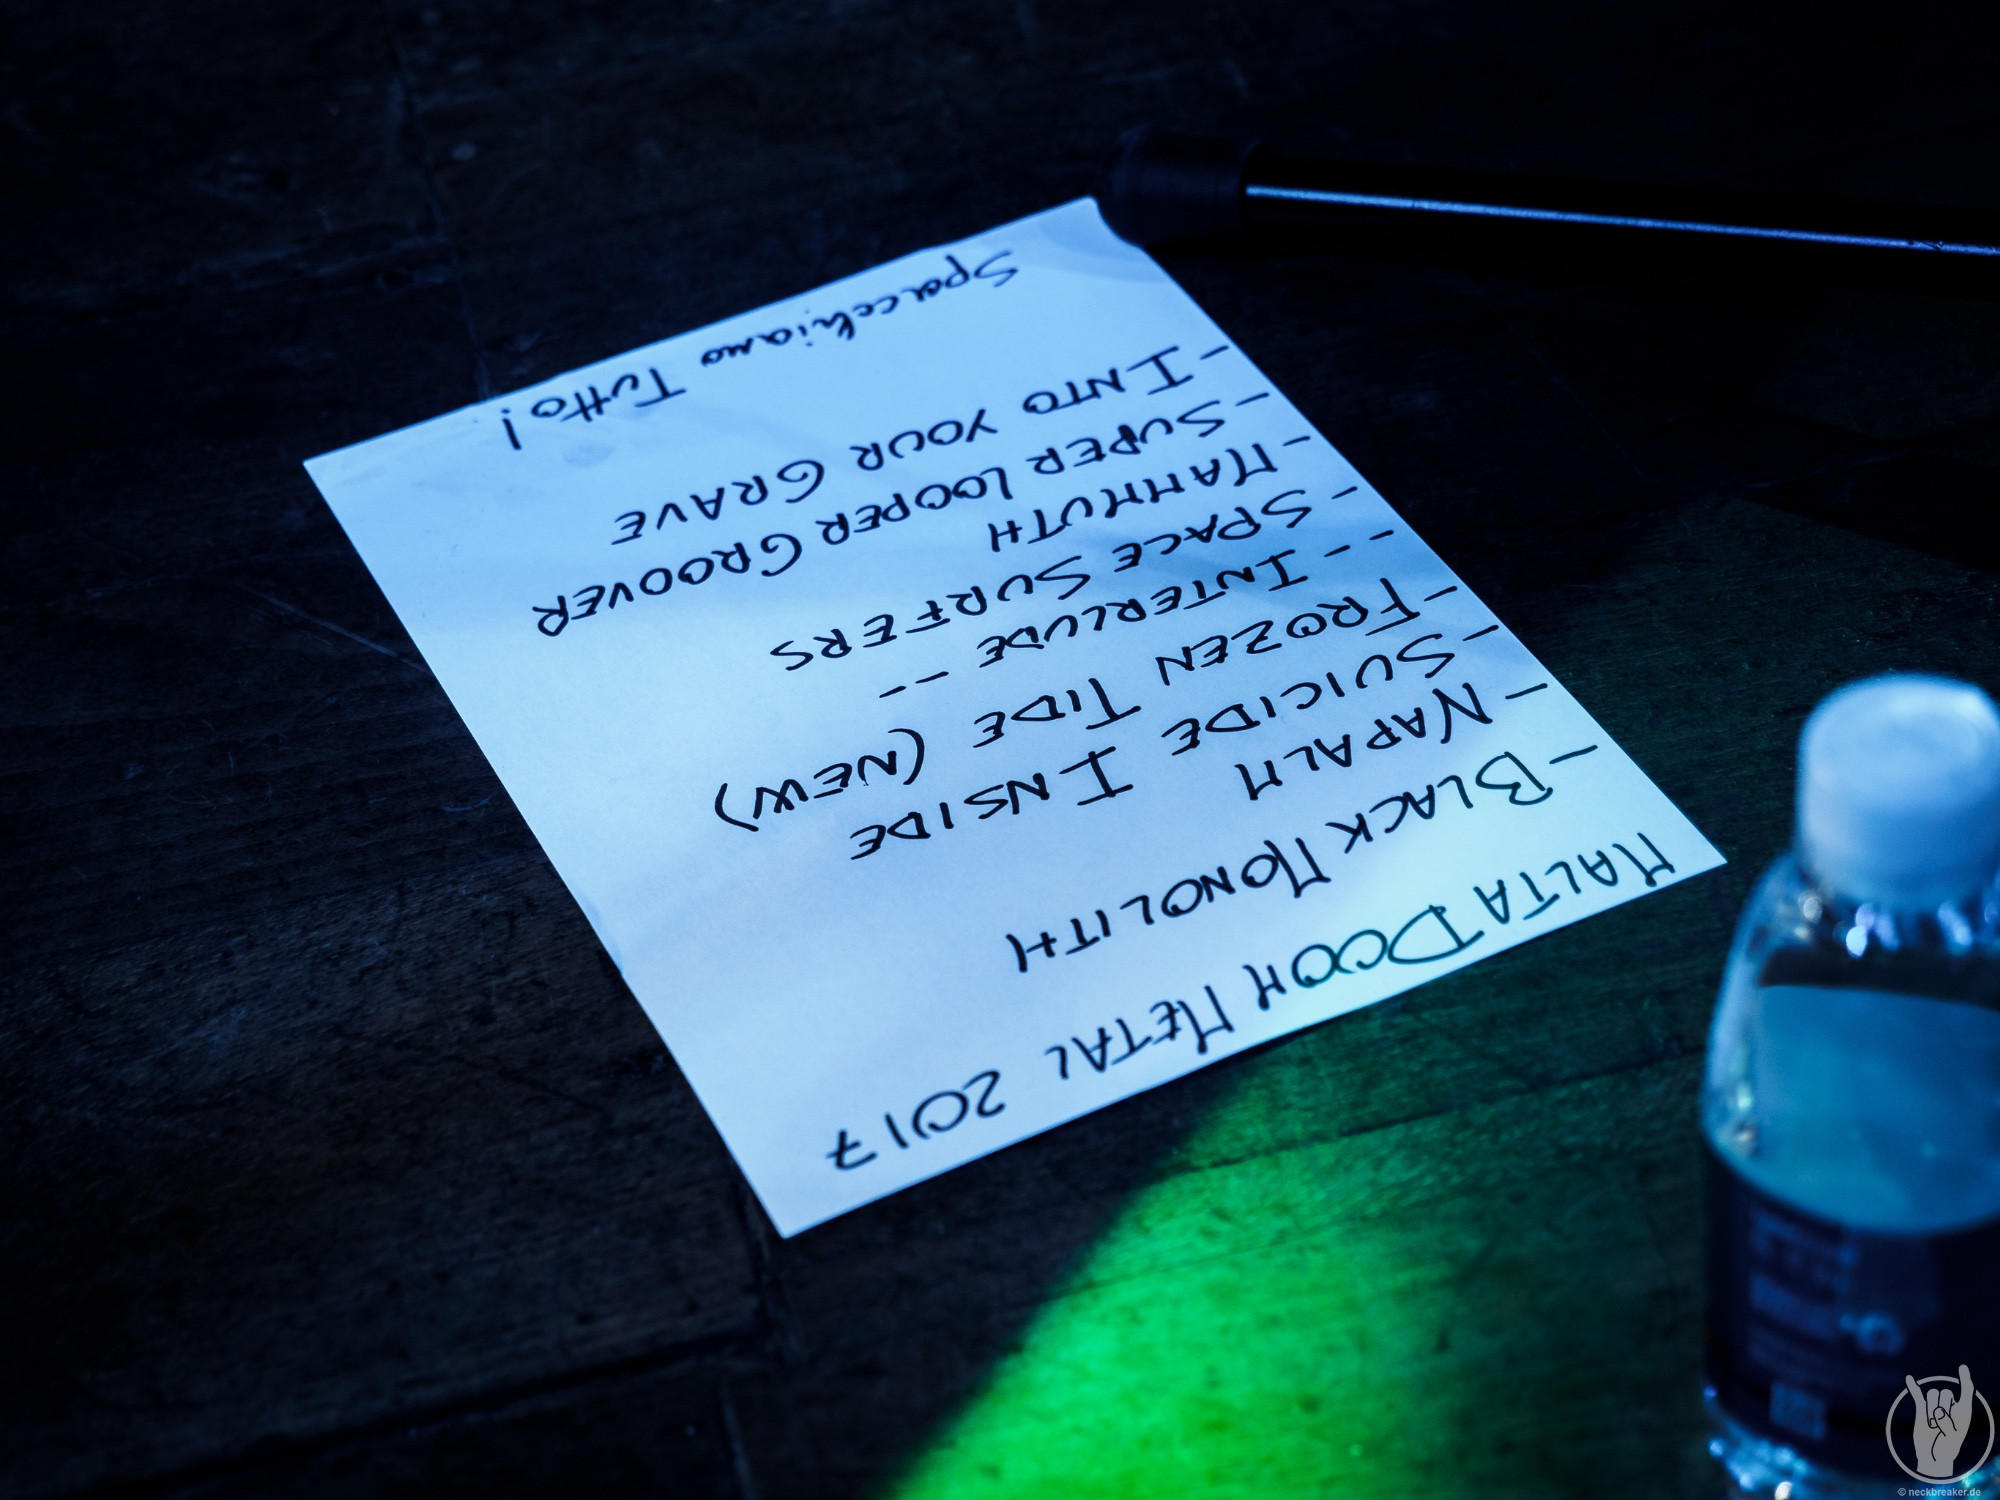 MALTA DOOM METAL 2017
- BLACK MONOLITH
- NAPALM
- SUICIDE INSIDE
- FROZEN TIDE (NEW)
-- INTERLUDE --
- SPACE SURFERS
- MAMMUTH
- SUPER LOOPER GROOVER
- INTO YOUR GRAVE
Spacchiamo Tutto!
© neckbreaker.de